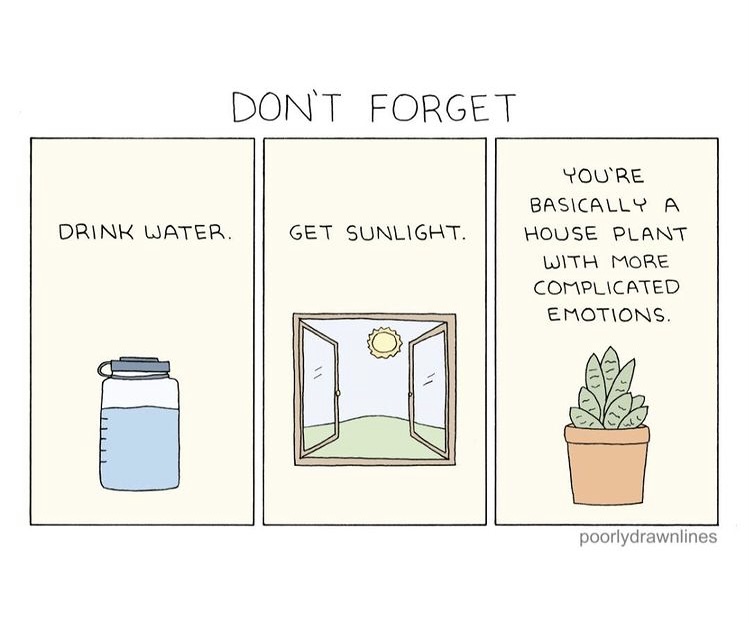 DON'T FORGET
DRINK WATER.
GET SUNLIGHT.
YOU'RE
BASICALLY A
HOUSE PLANT
WITH MORE
COMPLICATED
EMOTIONS.
poorlydrawnlines